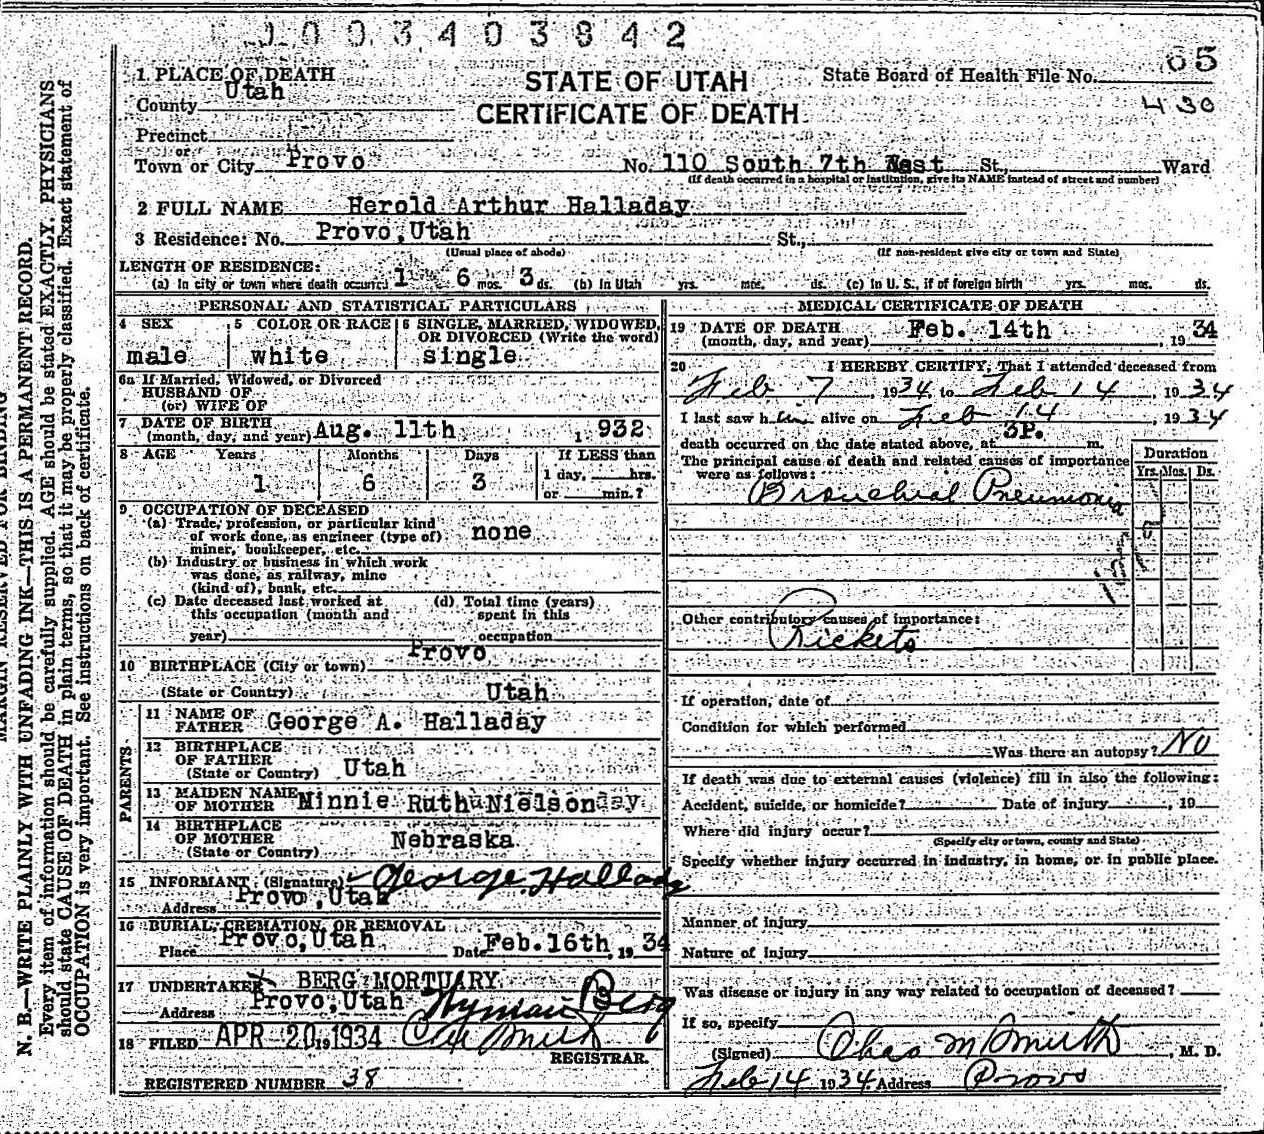 1003403842
65
1 PLACE OF DEATH
STATE OF UTAH
State Board of Health File No.
County Utah
CERTIFICATE OF DEATH
430
Precinct
or
Town or City Provo No. 110 South 7th West St., Ward
(If death occurred in a hospital or institution, give its NAME instead of street and number)
2 FULL NAME Herold Arthur Halladay
3 Residence: No. Provo, Utah St.,
(Usual place of abode) (If non-resident give city or town and State)
LENGTH OF RESIDENCE:
(a) In city or town where death occurred 1 6 mos. 3 ds. (b) In Utah yrs. mos. ds. (c) In U. S., if of foreign birth yrs. mos. ds.
PERSONAL AND STATISTICAL PARTICULARS
4 SEX 5 COLOR OR RACE 6 SINGLE, MARRIED, WIDOWED,
OR DIVORCED (Write the word)
male white single
6a If Married, Widowed, or Divorced
HUSBAND OF
(or) WIFE OF
7 DATE OF BIRTH
(month, day, and year) Aug. 11th 1932
8 AGE Years Months Days If LESS than
1 6 3 1 day, hrs.
or min.?
9 OCCUPATION OF DECEASED
(a) Trade, profession, or particular kind
of work done, as engineer (type of) none
miner, bookkeeper, etc.
(b) Industry or business in which work
was done, as railway, mine
(kind of), bank, etc.
(c) Date deceased last worked at (d) Total time (years)
this occupation (month and spent in this
year) occupation
10 BIRTHPLACE (City or town) Provo
(State or Country) Utah
PARENTS
11 NAME OF
FATHER George A. Halladay
12 BIRTHPLACE
OF FATHER
(State or Country) Utah
13 MAIDEN NAME
OF MOTHER Minnie Ruth Nielson
14 BIRTHPLACE
OF MOTHER Nebraska
(State or Country)
15 INFORMANT (Signature) George Halladay
Address Provo, Utah
16 BURIAL, CREMATION, OR REMOVAL
Place Provo, Utah Date Feb. 16th, 1934
17 UNDERTAKER BERG MORTUARY
Address Provo, Utah Hyman Berg
18 FILED APR 20 1934
REGISTRAR.
REGISTERED NUMBER 38
MEDICAL CERTIFICATE OF DEATH
19 DATE OF DEATH Feb. 14th
(month, day, and year), 1934
20 I HEREBY CERTIFY, That I attended deceased from
Feb 7, 1934, to Feb 14, 1934
I last saw him alive on Feb 14, 1934
death occurred on the date stated above, at 3P. m.
The principal cause of death and related causes of importance
were as follows:
Duration
Yrs. Mos. Ds.
Bronchial Pneumonia
Other contributory causes of importance:
Rickets
If operation, date of
Condition for which performed
Was there an autopsy? No
If death was due to external causes (violence) fill in also the following:
Accident, suicide, or homicide? Date of injury, 19
Where did injury occur?
(Specify city or town, county and State)
Specify whether injury occurred in industry, in home, or in public place.
Manner of injury
Nature of injury
Was disease or injury in any way related to occupation of deceased?
If so, specify
(Signed) Chas M Smith, M. D.
Feb 14 1934 Address Provo
MARGIN RESERVED FOR BINDING
N. B.—WRITE PLAINLY WITH UNFADING INK—THIS IS A PERMANENT RECORD.
Every item of information should be carefully supplied. AGE should be stated EXACTLY. PHYSICIANS
should state CAUSE OF DEATH in plain terms, so that it may be properly classified. Exact statement of
OCCUPATION is very important. See instructions on back of certificate.